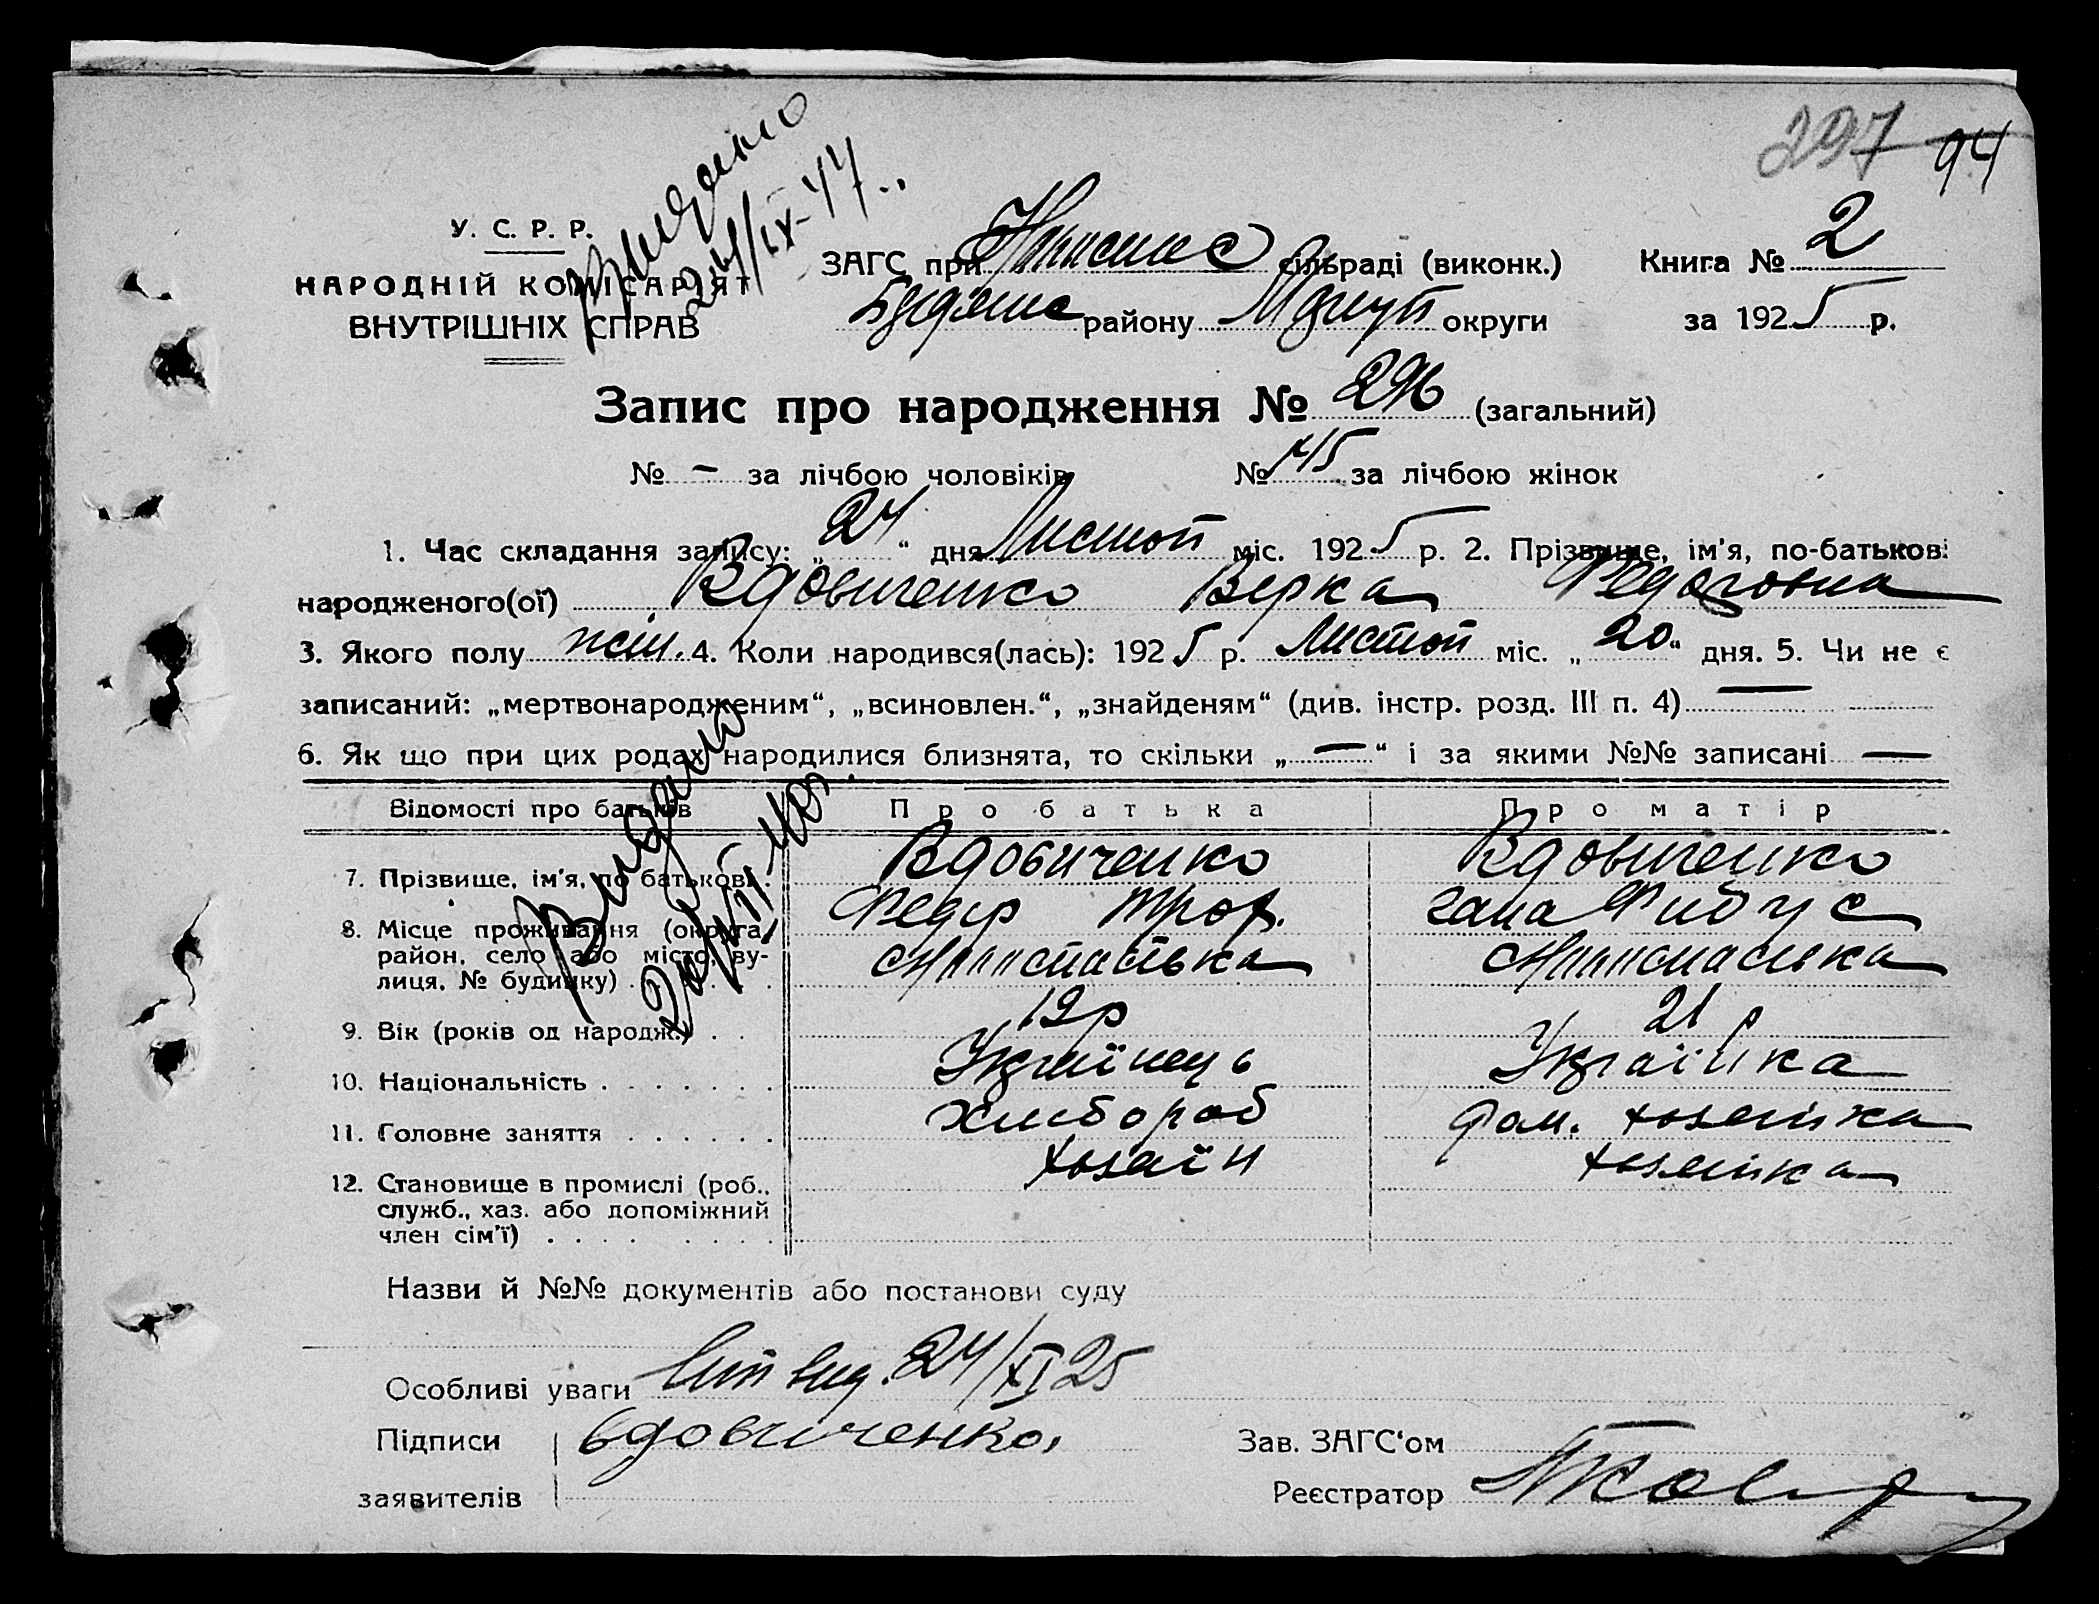 297 94
Видано
24/IX-47..
У. С. Р. Р.
НАРОДНІЙ КОМІСАРІЯТ
ВНУТРІШНІХ СПРАВ
ЗАГС при сільраді (виконк.)
району округи
Книга № 2
за 1925 р.
Запис про народження № 296 (загальний)
№ – за лічбою чоловіків № 145 за лічбою жінок
1. Час складання запису: „24“ дня Листоп міс. 1925 р. 2. Прізвище, ім'я, по-батькові
народженого(ої) Вдовиченко Вірка Федоровна
3. Якого полу жін. 4. Коли народився(лась): 1925 р. Листоп міс. „20“ дня. 5. Чи не є
записаний: „мертвонародженим“, „всиновлен.“, „знайденям“ (див. інстр. розд. III п. 4) —
6. Як що при цих родах народилися близнята, то скільки „—“ і за якими №№ записані —
Відомості про батьків Про батька Про матір
Видано
7. Прізвище, ім'я, по батькові. Вдовиченко Вдовиченко
Федір Троф. Гана
8. Місце проживання (округа,
район, село або місто, ву-
лиця, № будинку)
9. Вік (років од народж.) 19р 21 р
10. Національність Українець Українка
11. Головне заняття Хлибороб Дом. хозяйка
12. Становище в промислі (роб., хозяїн хозяйка
служб., хаз. або допоміжний
член сім'ї)
Назви й №№ документів або постанови суду
Особливі уваги вид. 24/XI 25
Підписи Вдовиченко
заявителів
Зав. ЗАГС'ом
Реєстратор